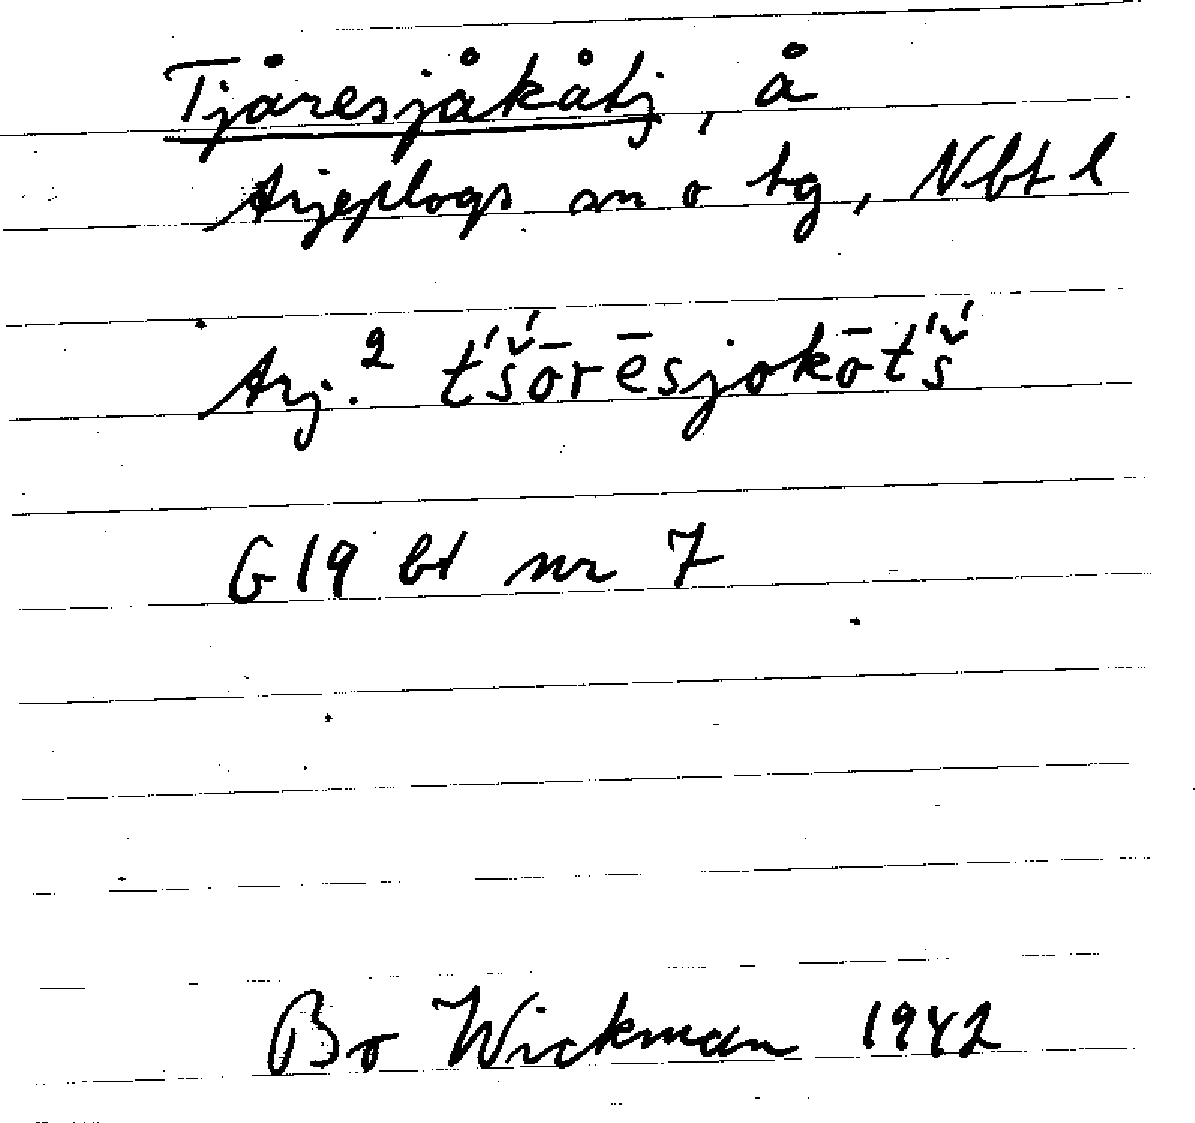 Tjåresjåkåtj, å
Arjeplogs sn o tg, Nbt l
Arj.² t́š́ōrēsjokōt́š́
G19 bl nr 7
Bo Wickman 1942